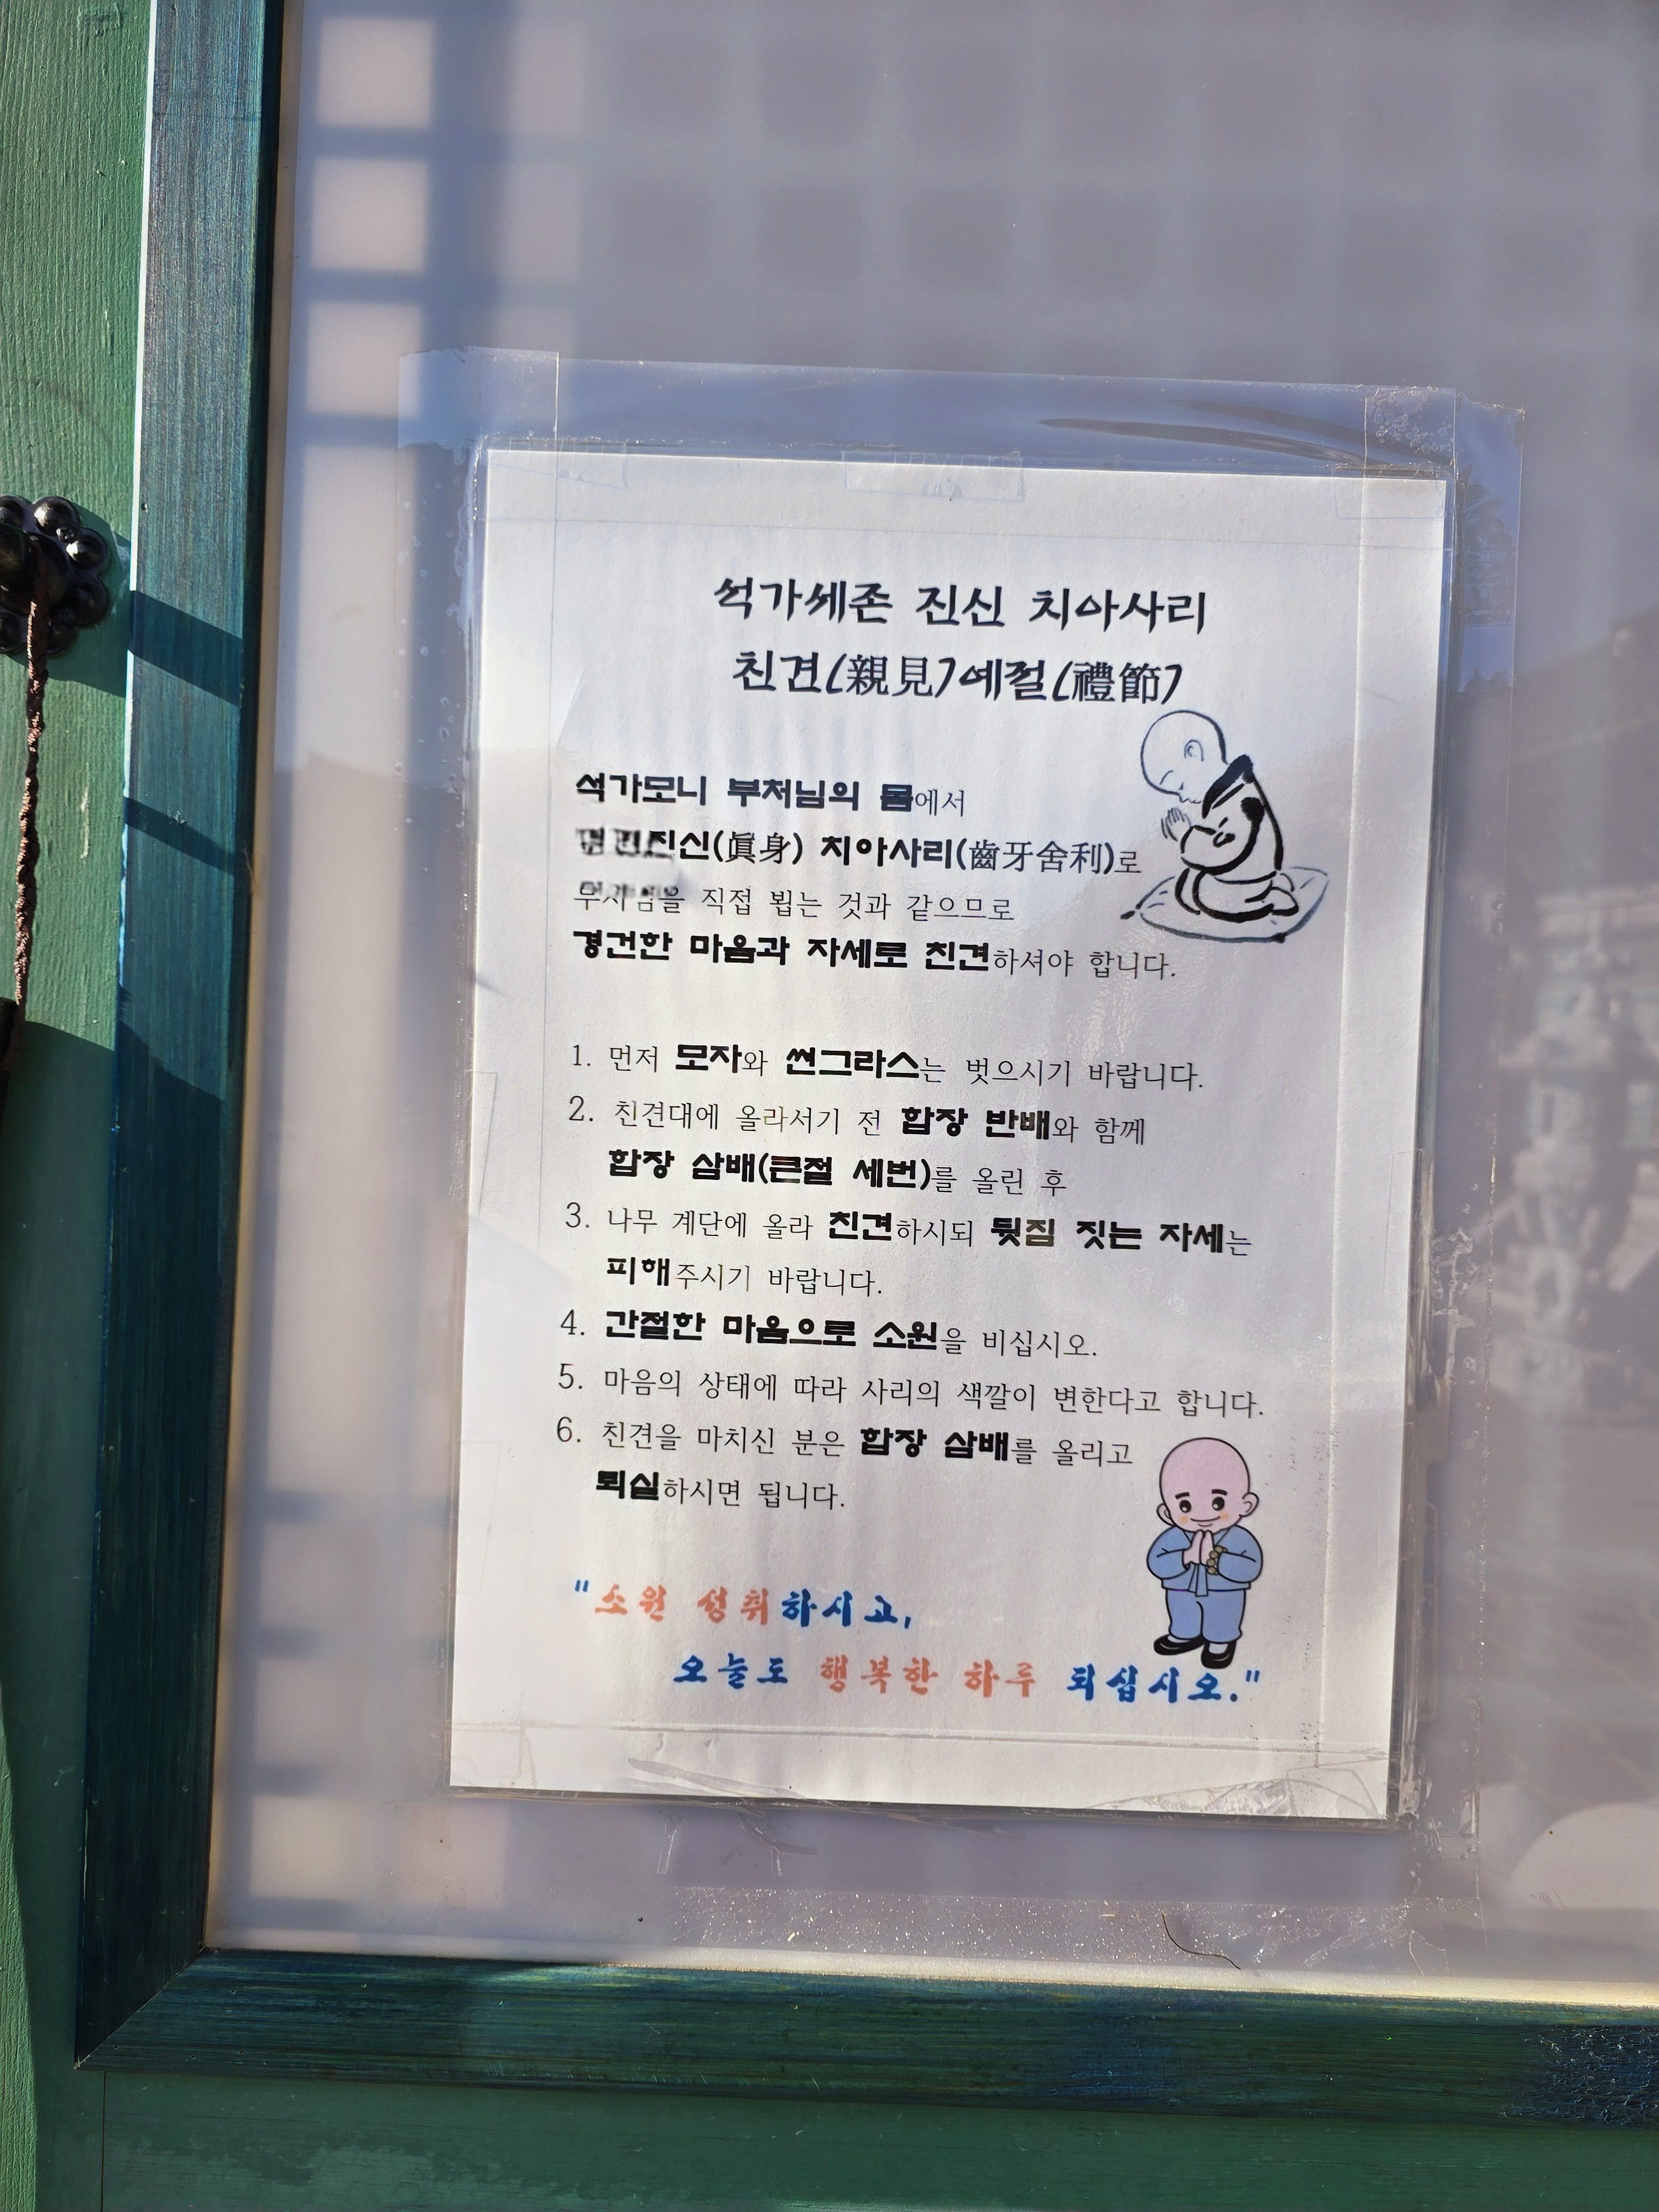 석가세존 진신 치아사리
친견(親見)예절(禮節)
석가모니 부처님의 몸에서
진신(眞身) 치아사리(齒牙舍利)로
직접 뵙는 것과 같으므로
경건한 마음과 자세로 친견하셔야 합니다.
1. 먼저 모자와 썬그라스는 벗으시기 바랍니다.
2. 친견대에 올라서기 전 합장 반배와 함께
합장 삼배(큰절 세번)를 올린 후
3. 나무 계단에 올라 친견하시되 뒷짐 짓는 자세는
피해주시기 바랍니다.
4. 간절한 마음으로 소원을 비십시오.
5. 마음의 상태에 따라 사리의 색깔이 변한다고 합니다.
6. 친견을 마치신 분은 합장 삼배를 올리고
퇴실하시면 됩니다.
"소원 성취하시고,
오늘도 행복한 하루 되십시오."